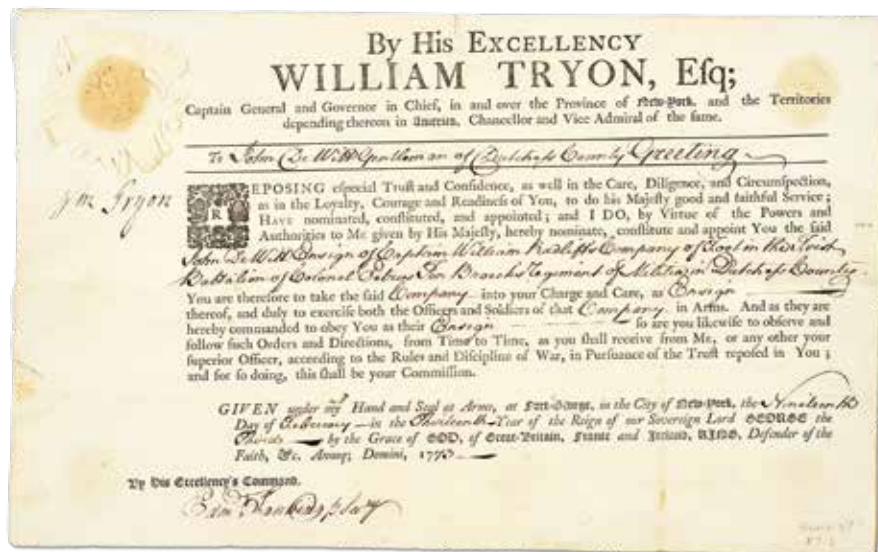 By His EXCELLENCY
WILLIAM TRYON, Esq;
Captain General and Governor in Chief, in and over the Province of New-York, and the Territories
depending thereon in America, Chancellor and Vice Admiral of the same.
To John De Witt Gentleman of Dutchess County Greeting
Wm Tryon
REPOSING especial Trust and Confidence, as well in the Care, Diligence, and Circumspection,
as in the Loyalty, Courage and Readiness of You, to do his Majesty good and faithful Service;
HAVE nominated, constituted, and appointed; and I DO, by Virtue of the Powers and
Authorities to Me given by His Majesty, hereby nominate, constitute and appoint You the said
John De Witt Ensign of Captain William Radliffs Company of Foot in the
Battalion of Colonel Petrus Ten Broecks Regiment of Militia in Dutchess County
You are therefore to take the said Company into your Charge and Care, as Ensign
thereof, and duly to exercise both the Officers and Soldiers of that Company in Arms. And as they are
hereby commanded to obey You as their Ensign so are you likewise to observe and
follow such Orders and Directions, from Time to Time, as you shall receive from Me, or any other your
superior Officer, according to the Rules and Discipline of War, in Pursuance of the Trust reposed in You;
and for so doing, this shall be your Commission.
GIVEN under my Hand and Seal at Arms, at Fort-George, in the City of New-York, the Nineteenth
Day of February in the Thirteenth Year of the Reign of our Sovereign Lord GEORGE the
Third by the Grace of GOD, of Great-Britain, France and Ireland, KING, Defender of the
Faith, &c. Annoq; Domini, 1773
By His Excellency's Command.